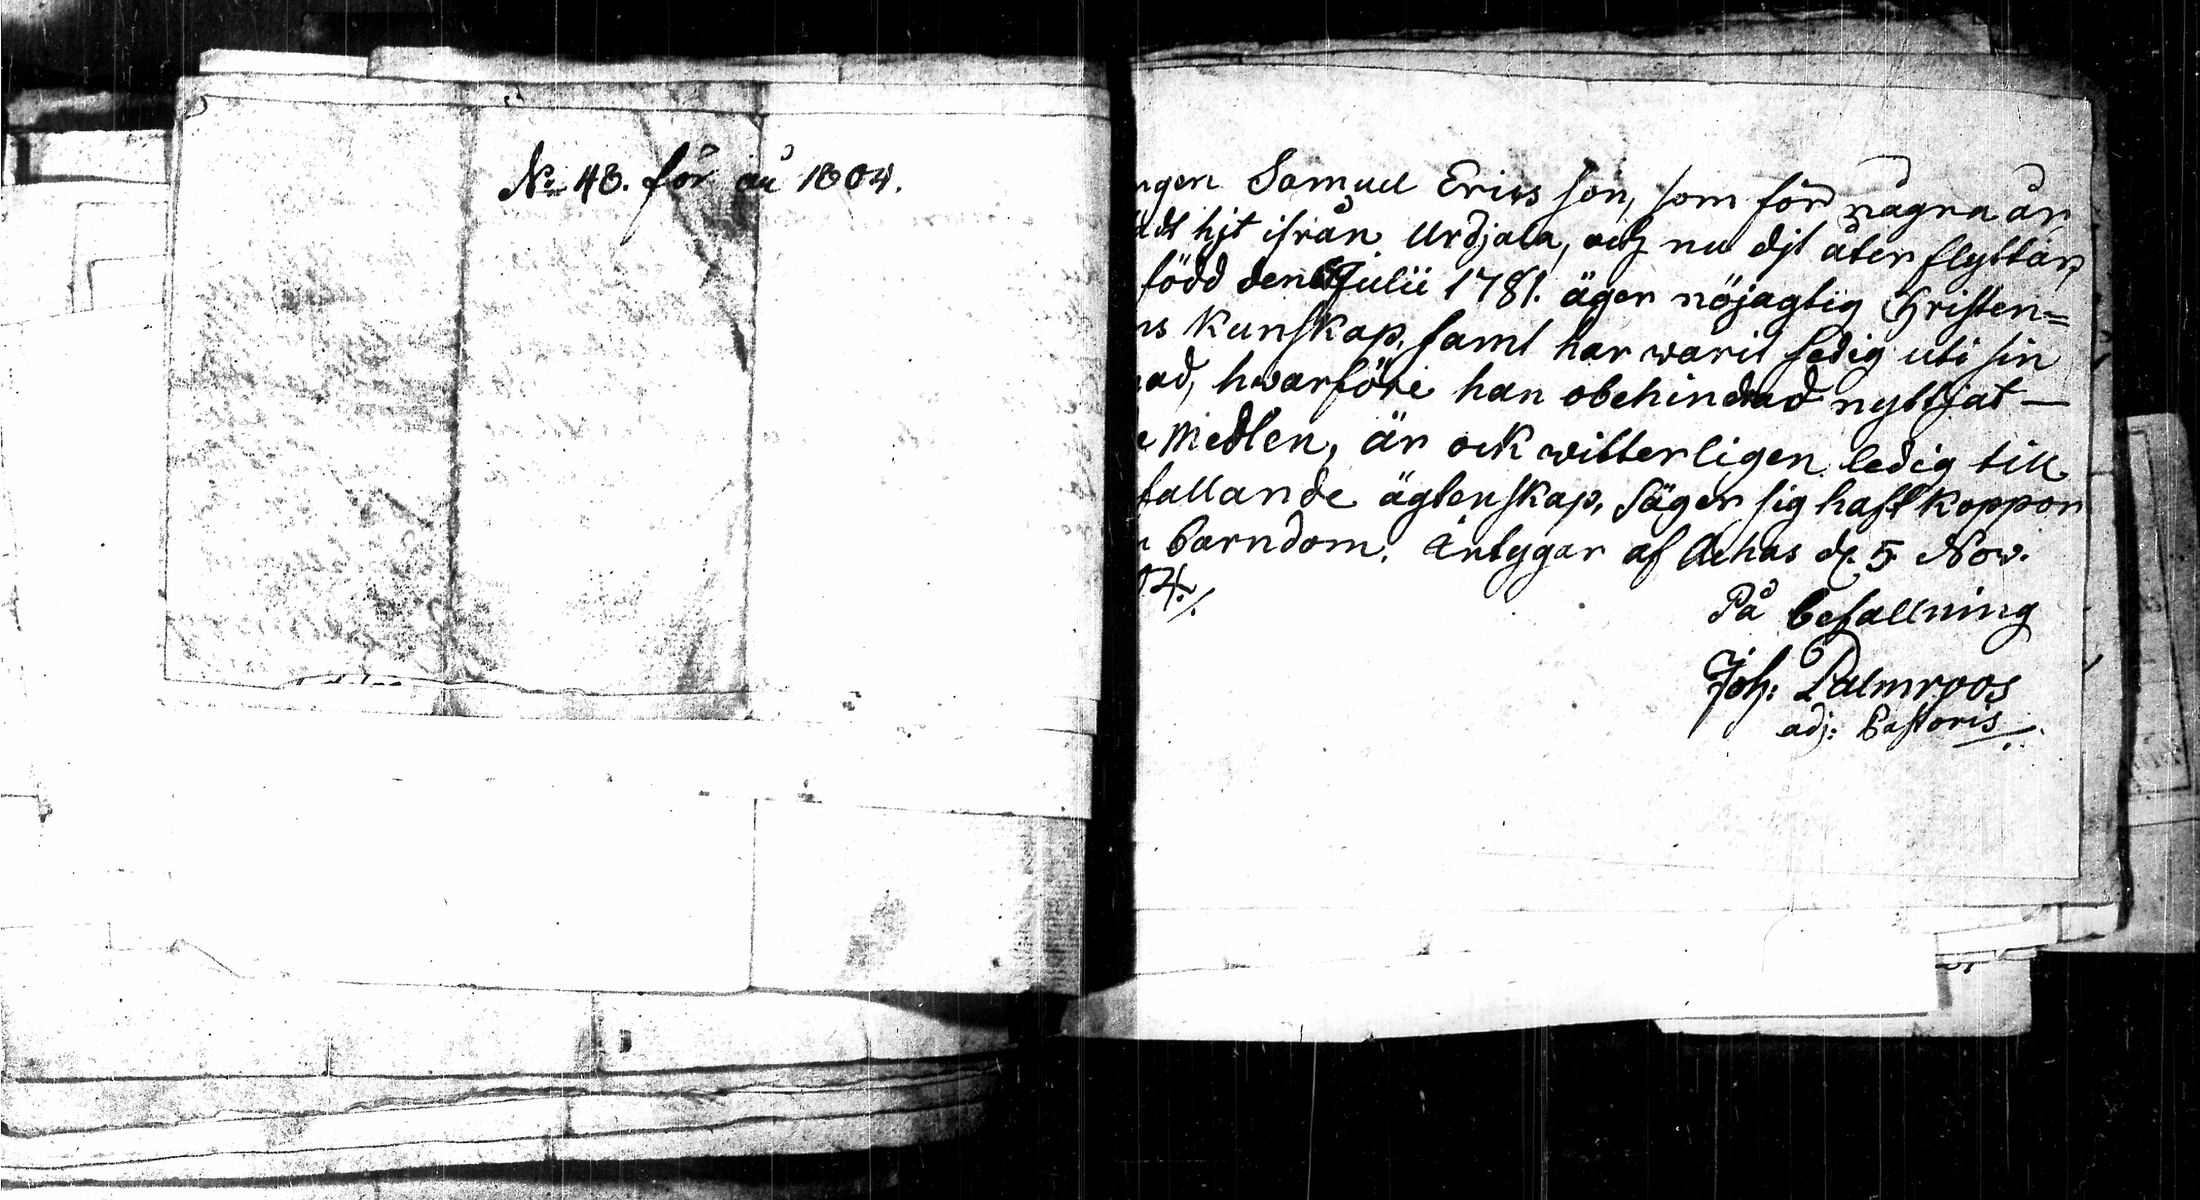 No 48. för åu 1804.
ngen Samuel Erics son, som för några år
ldt hjt ifrån Urdjala, och nu djt åter flyttar,
född den Julii 1781. äger nöjagtig Christen=
ns Kunskap, samt har warit sedig uti sin
nad, hwarföre han obehindrad nyttjat —
e Medlen, är ock witterligen ledig till
fallande ägtenskap, säger sig haft koppor
i barndom. Intygar af Achas d. 5 Nov.
04./.
På befallning
Joh: Palmroos
adj: Pastoris